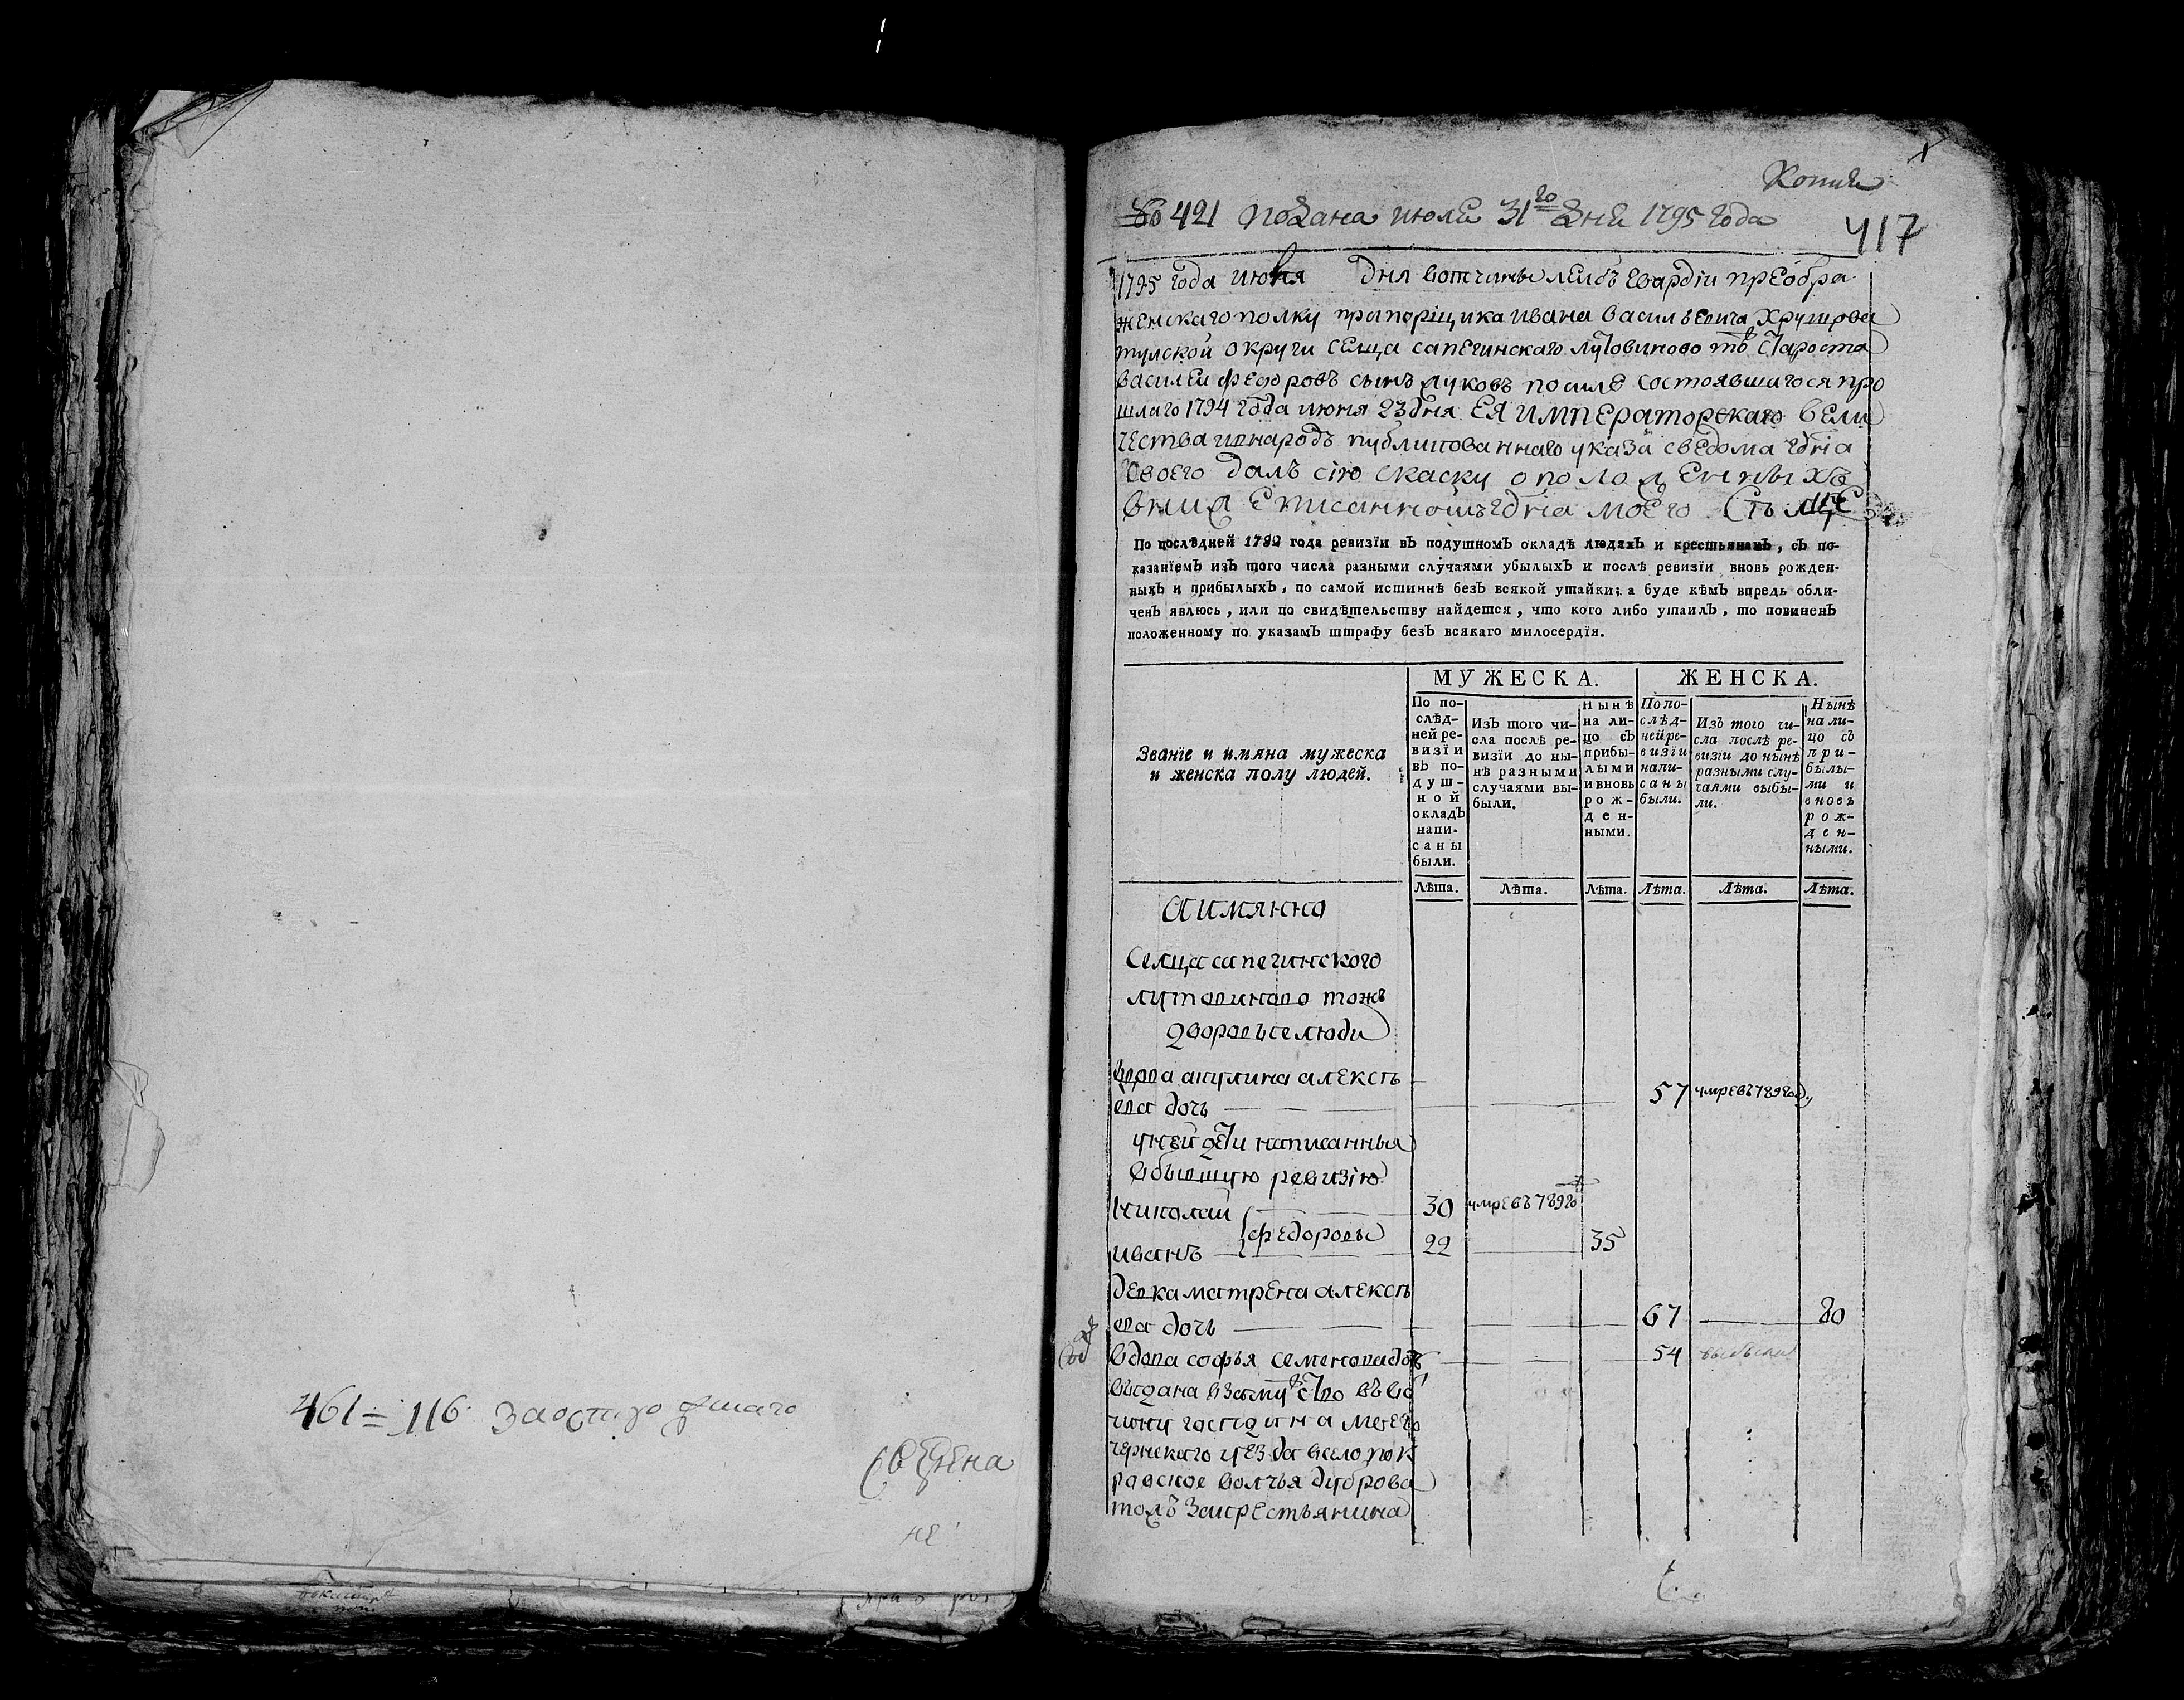 461 = 116
Копия
№ 421 подана июля 31го дня 1795 года
417
1795 года июня дня вотчины леибъ гвардіи преобра
женскаго полку прапорщика ивана васильевича хрущова
тулской округи селца сапегинскаго лутовиново тоже староста
василеи федоровъ сынъ луковъ по силе состоявшагося про
шлаго 1794 года июня 23 дня ЕЯ императорскаго вели
чества в народъ публикованнаго указа сведома гдна
своего далъ сію скаску о положенныхъ
гдна моего
По послѣдней 1782 года ревизїи въ подушномъ окладѣ людяхъ и крестьянахъ, съ по-
казанїемъ изъ того числа разными случаями убылыхъ и послѣ ревизїи вновь рожден-
ныхъ и прибылыхъ, по самой истиннѣ безъ всякой утайки; а буде кѣмъ впредь обли-
ченъ явлюсь, или по свидѣтельству найдется, что кого либо утаилъ, то повиненъ
положенному по указамъ штрафу безъ всякаго милосердїя.
Званїе и имяна мужеска
и женска полу людей.
МУЖЕСКА.
ЖЕНСКА.
По по-
слѣд-
ней ре-
визїи
въ по-
душ-
ной
окладъ
напи-
саны
были.
Изъ того чи-
сла послѣ ре-
визїи до ны-
нѣ разными
случаями вы-
были.
Нынѣ
на ли-
цо съ
прибы-
лыми
и вновь
рож-
ден-
ными.
По по-
слѣд-
ней ре-
визїи
напи-
саны
были.
Изъ того чи-
сла послѣ ре-
визїи до нынѣ
разными слу-
чаями выбы-
ли.
Нынѣ
на ли-
цо съ
при-
былы-
ми и
вновь
рож-
ден-
ными.
Лѣта. Лѣта. Лѣта. Лѣта. Лѣта. Лѣта.
А имянно
Селца сапегинского
лутовиново тожъ
дворовые люди
вдова акулина алексѣ
ева дочь 57 умре въ 789 году
у ней дети написанныя
в бывшую ревизію
николаи 30 умре въ 789 го
федоровы
иванъ 22 35
девка матрена алексѣ
ева дочь 67 80
вдова софья семенова дочь 54
выдана в замужство въ во
чину господина моего
чернскаго уезда в село пок
ровское волчья дуброва
тожъ за крестьянина